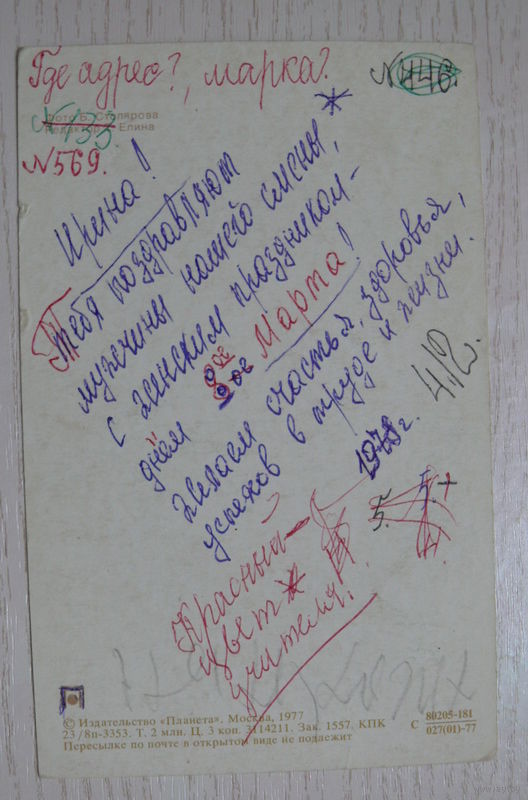 Где адрес?, марка?
№446.
Фото Б. Столярова
Редактор Г. Елина
№133
№569.
Ирина!
Тебя поздравляют
мужчины нашего смены,*
с женским праздником-
днём 8ое Марта!
желаем счастья, здоровья,
успехов в труде и жизни.
1978г.
412.
5.
Красный-
цвет
учителя!
© Издательство «Планета». Москва, 1977
23/8п-3353. Т. 2 млн. Ц. 3 коп. 3114211. Зак. 1557. КПК
Пересылке по почте в открытом виде не подлежит
С 80205-181
027(01)-77